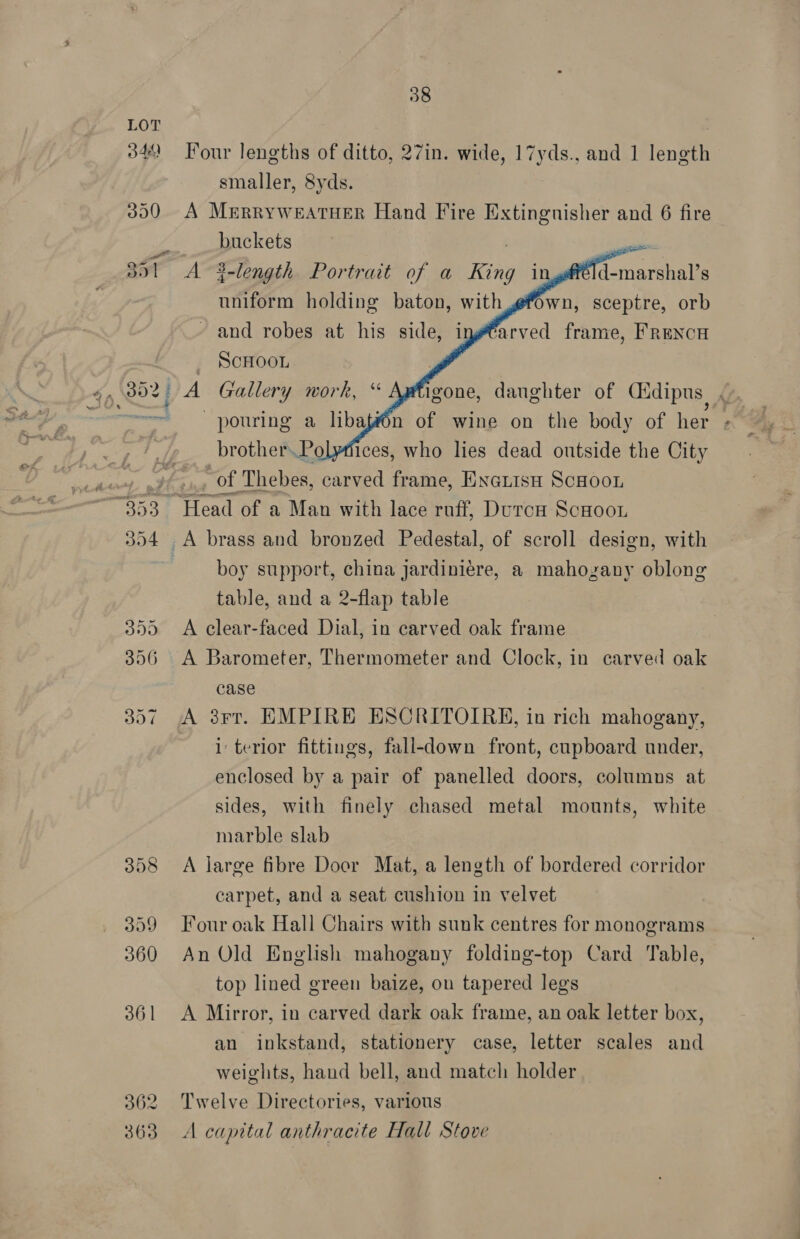 38
LOT
349 Four lengths of ditto, 27in. wide, 17yds., and 1 length
smaller, 8yds.
350 A MERRYWEATHER Hand Fire Extinguisher and 6 fire
buckets
351 A ¾-length Portrait of a King in field-marshal's
uniform holding baton, with crown, sceptre, orb
and robes at his side, in carved frame, FRENCH
SCHOOL
352 A Gallery work, “Antigone, daughter of Œdipus,
pouring a libation of wine on the body of her
brother Polynices, who lies dead outside the City
of Thebes, carved frame, ENGLISH SCHOOL
353 Head of a Man with lace ruff, DUTCH SCHOOL
354 A brass and bronzed Pedestal, of scroll design, with
boy support, china jardinière, a mahogany oblong
table, and a 2-flap table
355 A clear-faced Dial, in carved oak frame
356 A Barometer, Thermometer and Clock, in carved oak
case
357 A 3FT. EMPIRE ESCRITOIRE, in rich mahogany,
i terior fittings, fall-down front, cupboard under,
enclosed by a pair of panelled doors, columns at
sides, with finely chased metal mounts, white
marble slab
358 A large fibre Door Mat, a length of bordered corridor
carpet, and a seat cushion in velvet
359 Four oak Hall Chairs with sunk centres for monograms
360 An Old English mahogany folding-top Card Table,
top lined green baize, on tapered legs
361 A Mirror, in carved dark oak frame, an oak letter box,
an inkstand, stationery case, letter scales and
weights, hand bell, and match holder
362 Twelve Directories, various
363 A capital anthracite Hall Stove